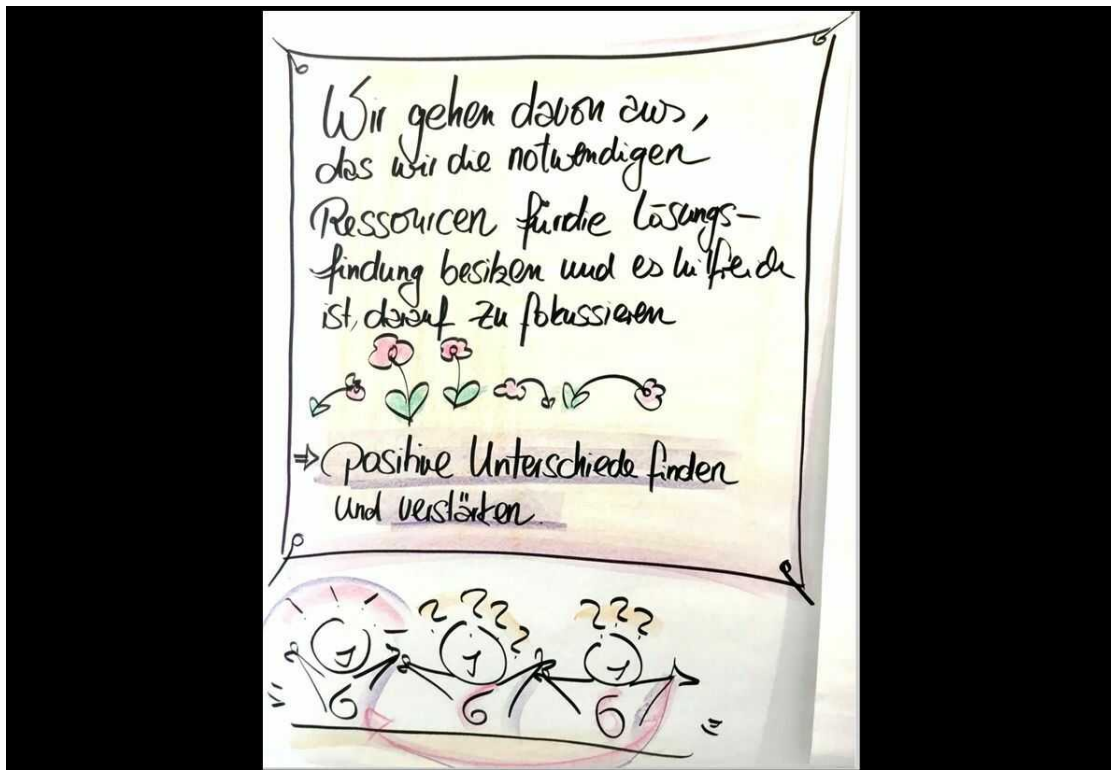 Wir gehen davon aus,
das wir die notwendigen
Ressourcen für die Lösungs-
findung besitzen und es hilfreich
ist, darauf zu fokussieren
⇒ positive Unterschiede finden
und verstärken.
? ? ? ? ? ? ?
6 6 6